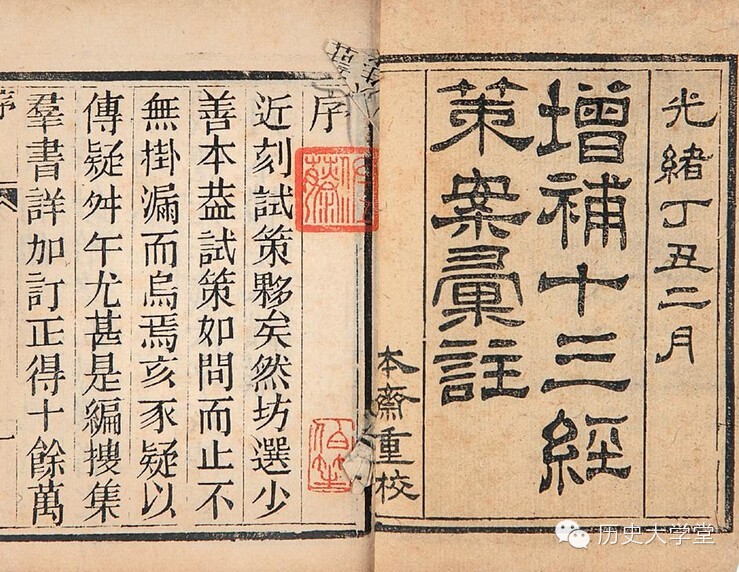 光緒丁丑二月
增補十三經
策案彙註
本齋重校
序
近刻試策夥矣然坊選少
善本葢試策如問而止不
無掛漏而烏焉亥豕疑以
傳疑舛午尤甚是編摟集
羣書詳加訂正得十餘萬
序
一
历史大学堂